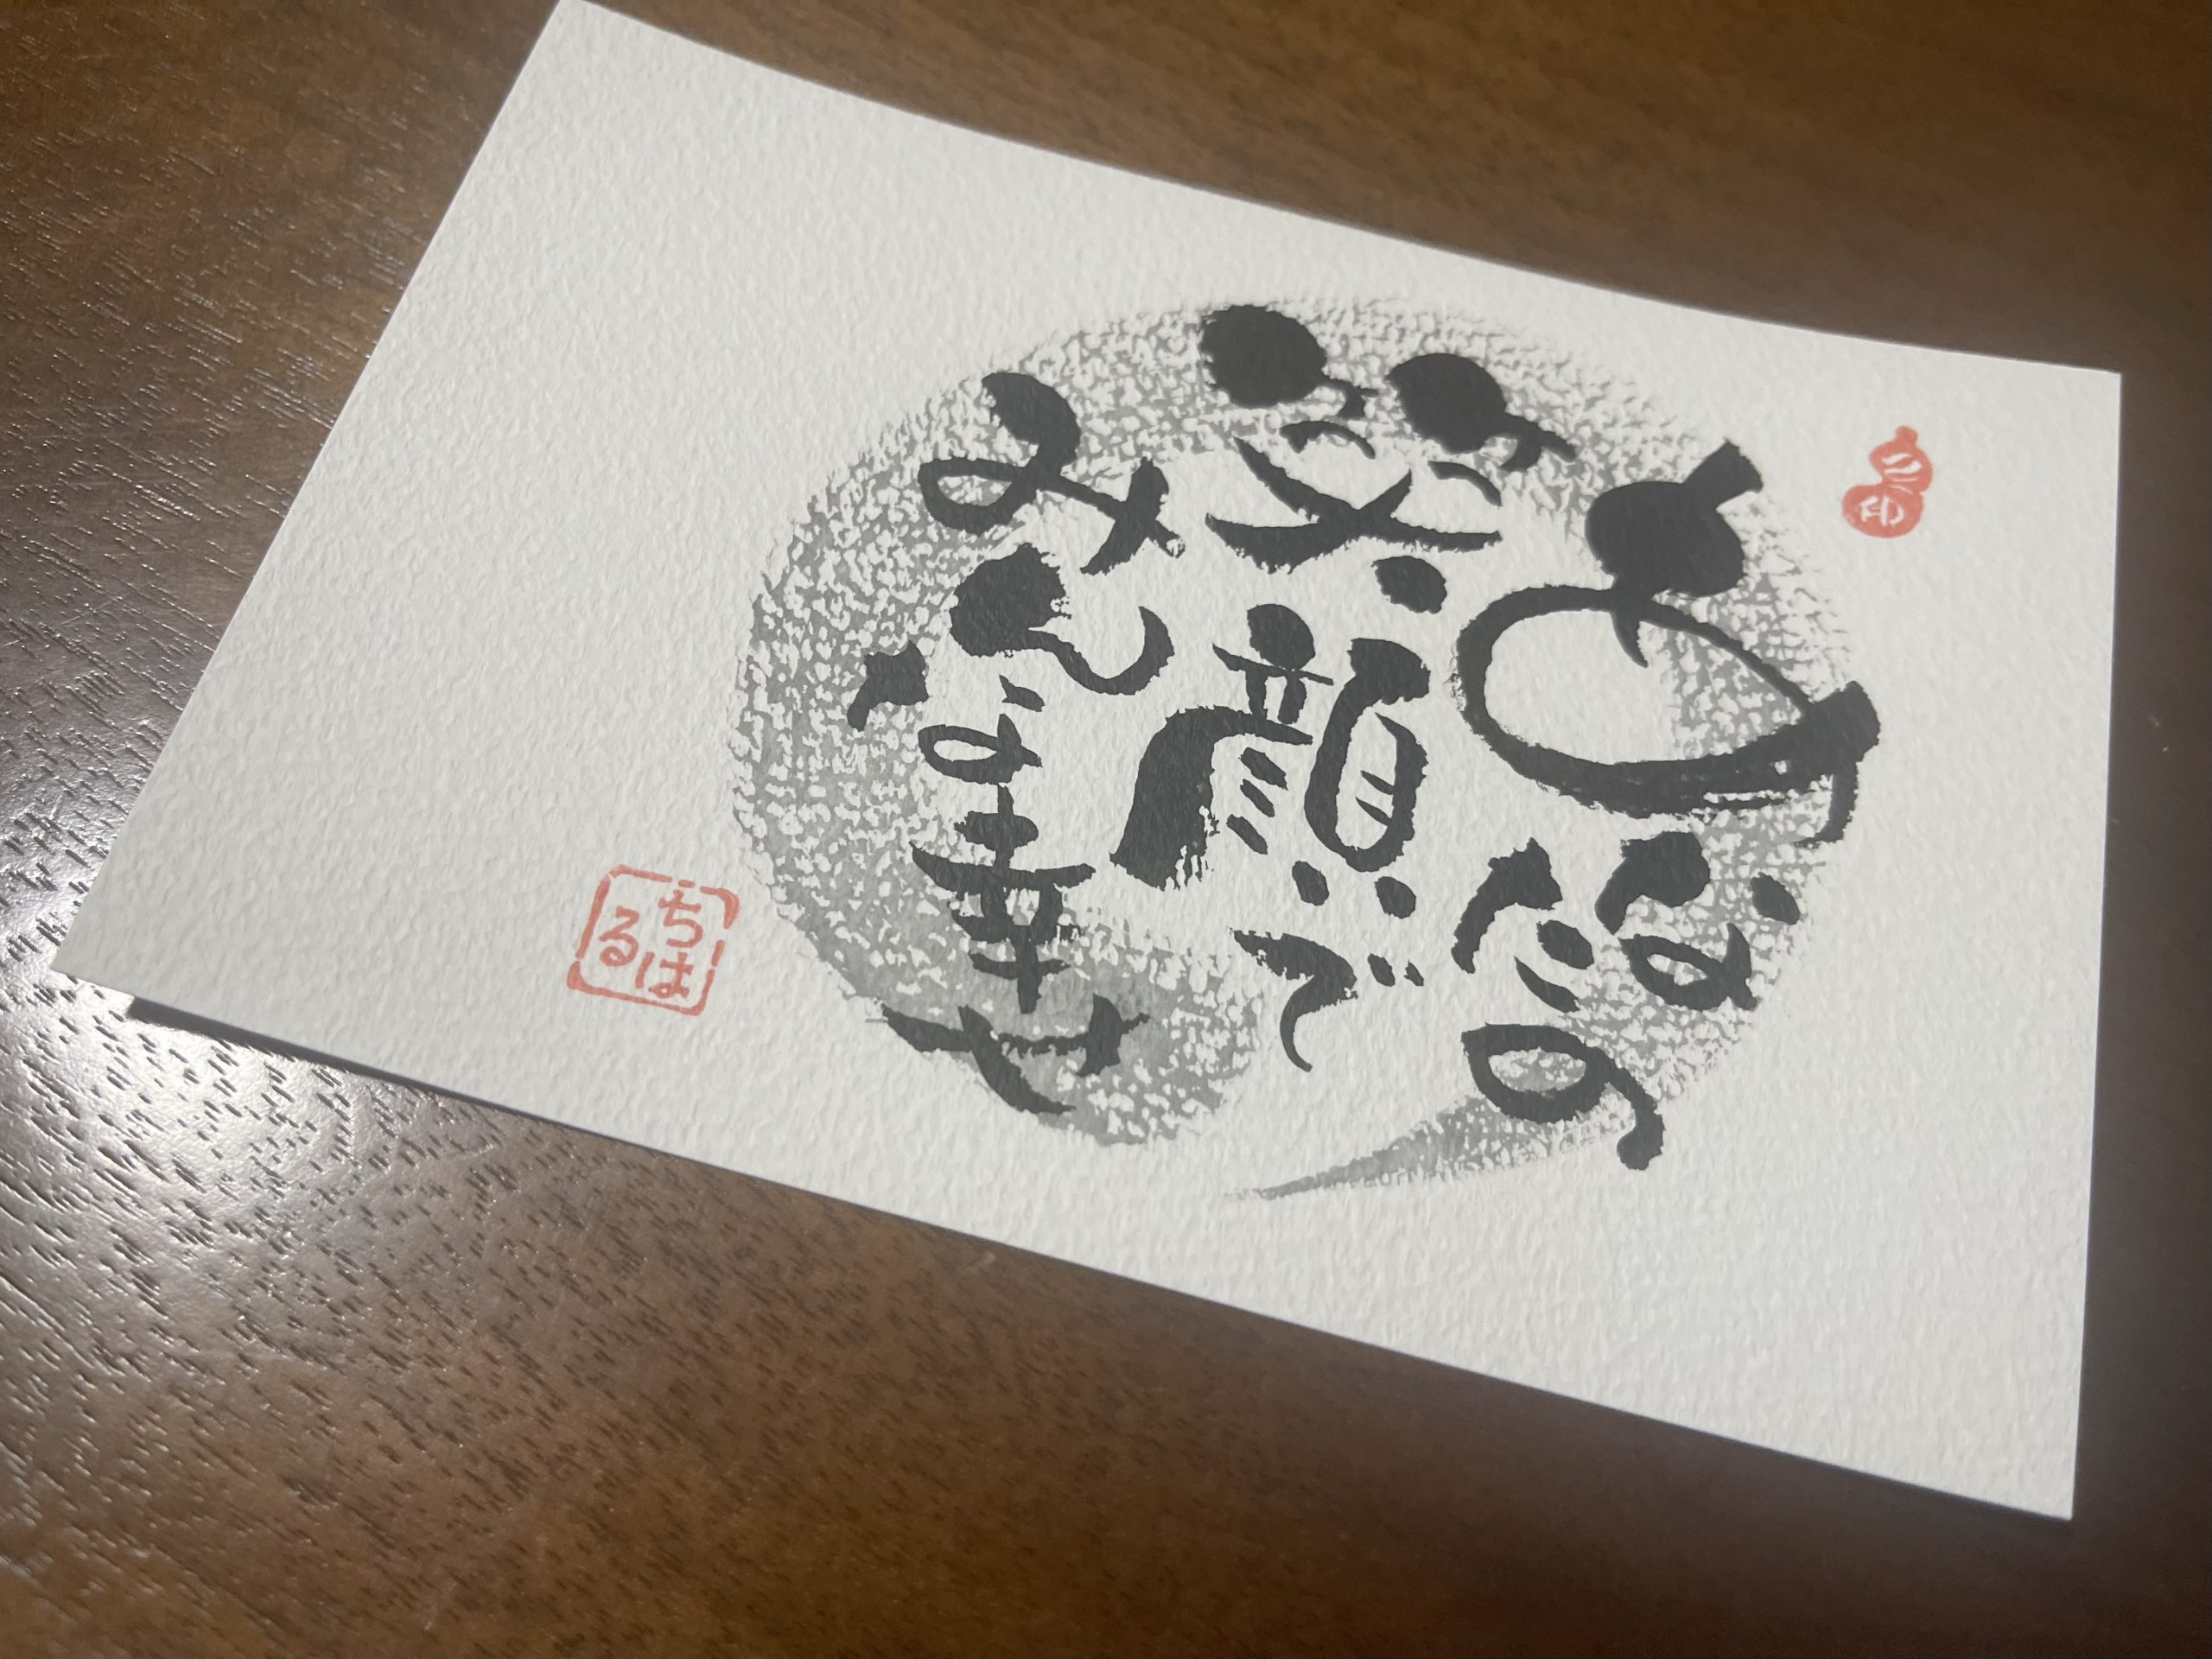 あなたの
笑顔で
みんな幸せ
ちはる